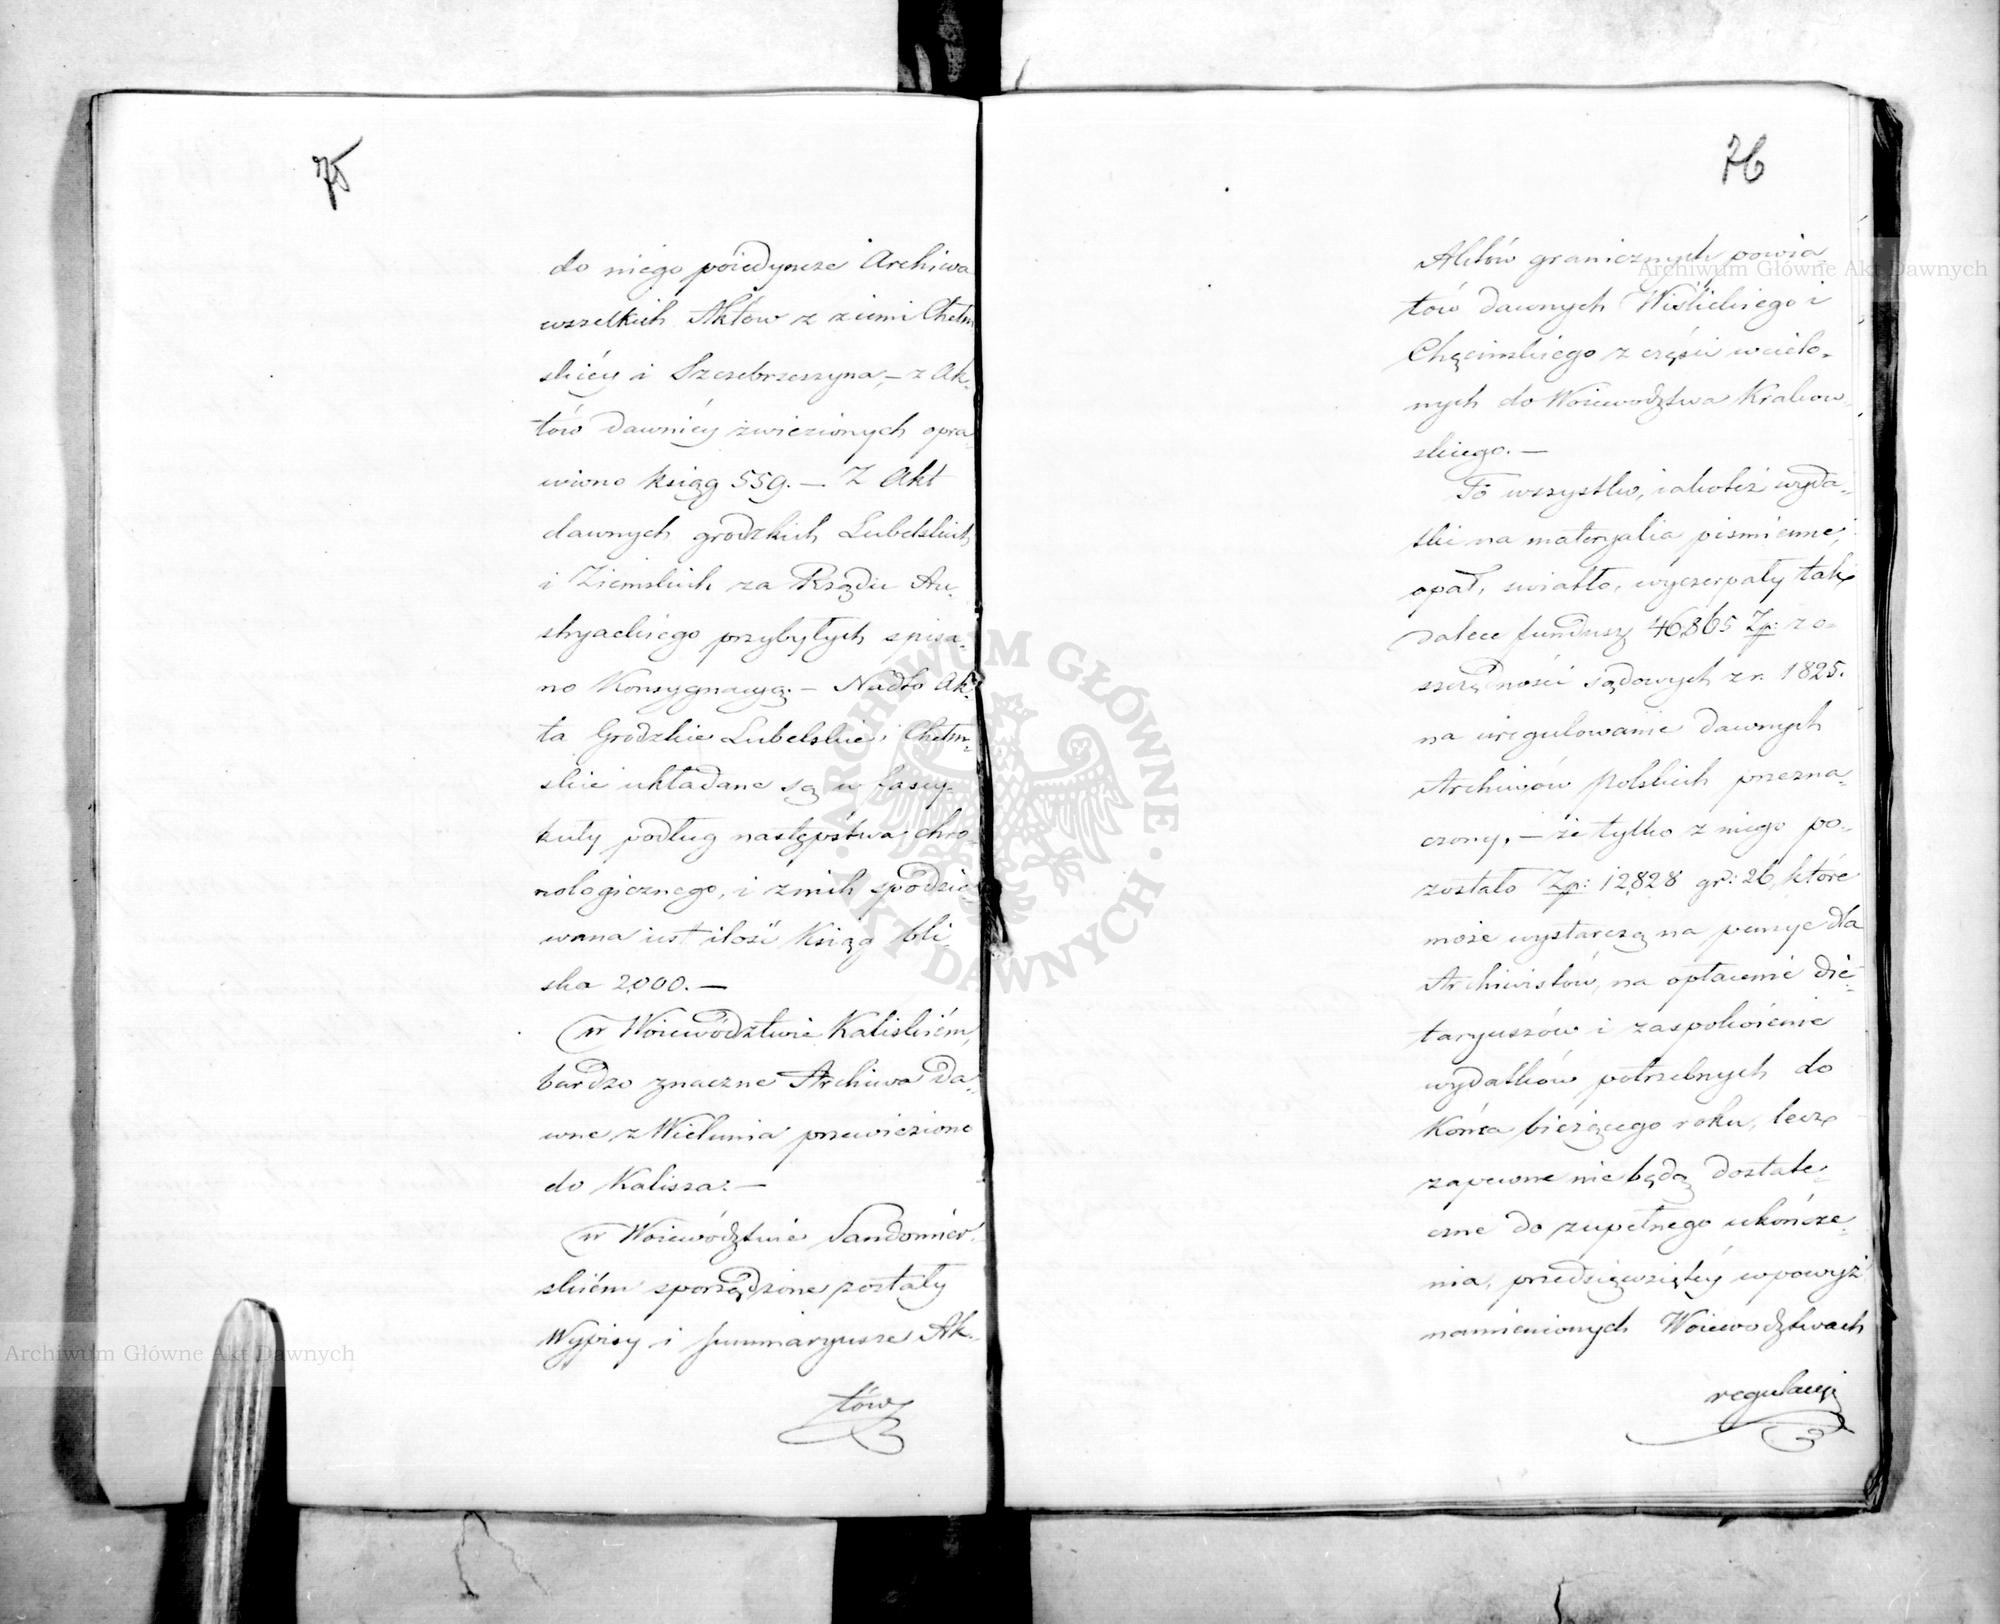 75
do niego poiedyncze Archiwa
wszelkich Aktów z ziemi Chełm
skiéy i Szczebrzeszyna, – z Ak-
tów dawniéy zwiezionych opra-
wiono ksiąg 559. – Z Akt
dawnych grodzkich Lubelskich
i Ziemskich za Rządu Au-
stryackiego przybyłych spisa-
no Konsygnacyą. – Nadto Ak-
ta Grodzkie Lubelskie i Chełm-
skie układane są w fascy-
kuły podług następstwa chro-
nologicznego, i z nich spodzie-
wana iest ilość Ksiąg bli-
ska 2000. –
w Woiewództwie Kaliskiém,
bardzo znaczne Archiwa da-
wne z Wielunia przewiezione
do Kalisza. –
w Woiewództwie Sandomier-
skiém sporządzone zostały
Wypisy i summaryusze Ak-
tów
76
Aktów granicznych powia-
tów dawnych Wiślickiego i
Chęcinskiego z części wcielo-
nych do Woiewodztwa Krakow-
skiego. –
To wszystko, iakoteż wyda-
tki na materyalia piśmienne,
opał, swiatło, wyczerpały tak
dalece fundusz 46,865 Zp: z o-
szczędności sądowych z r. 1825.
na uregulowanie dawnych
Archiwów Polskich przezna-
czony, – że tylko z niego po-
zostało Zp: 12,828 gr: 26, które
może wystarczą na pensye dla
Archiwistów, na opłacenie die-
taryuszów i zaspokoienie
wydatków potrzebnych do
Końca bieżącego roku, lecz
zapewne nie będą dostate-
czne do zupełnego ukończe-
nia, przedsięwziętéy w powyż
namienionych Woiewodztwach
regulacyi
Archiwum Główne Akt Dawnych
Archiwum Główne Akt Dawnych
ARCHIWUM GŁÓWNE · AKT DAWNYCH ·